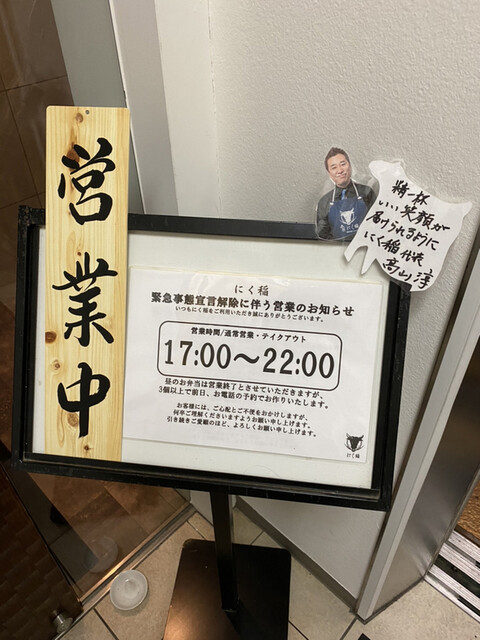 営業中
にく稲
緊急事態宣言解除に伴う営業のお知らせ
いつもにく稲をご利用いただき誠にありがとうございます。
営業時間/通常営業・テイクアウト
17:00〜22:00
昼のお弁当は営業終了とさせていただきますが、
3個以上で前日、お電話の予約でお作りいたします。
お客様には、ご心配とご不便をおかけしますが、
何卒ご理解くださいますようお願い申し上げます。
引き続きご愛顧のほど、よろしくお願い申し上げます。
にく稲
精一杯
いい笑顔が
届けられるように
にく稲 代表
高山 淳